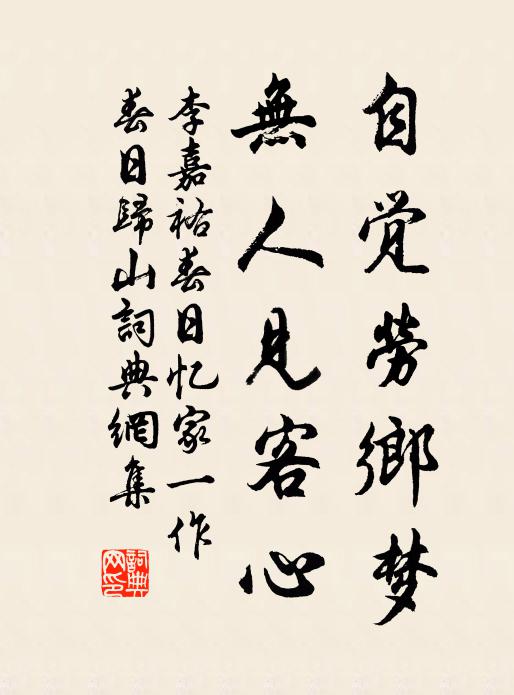 自觉劳鄉梦
無人見客心
李嘉祐春日忆家一作
春日歸山詞典網集
詞典网印